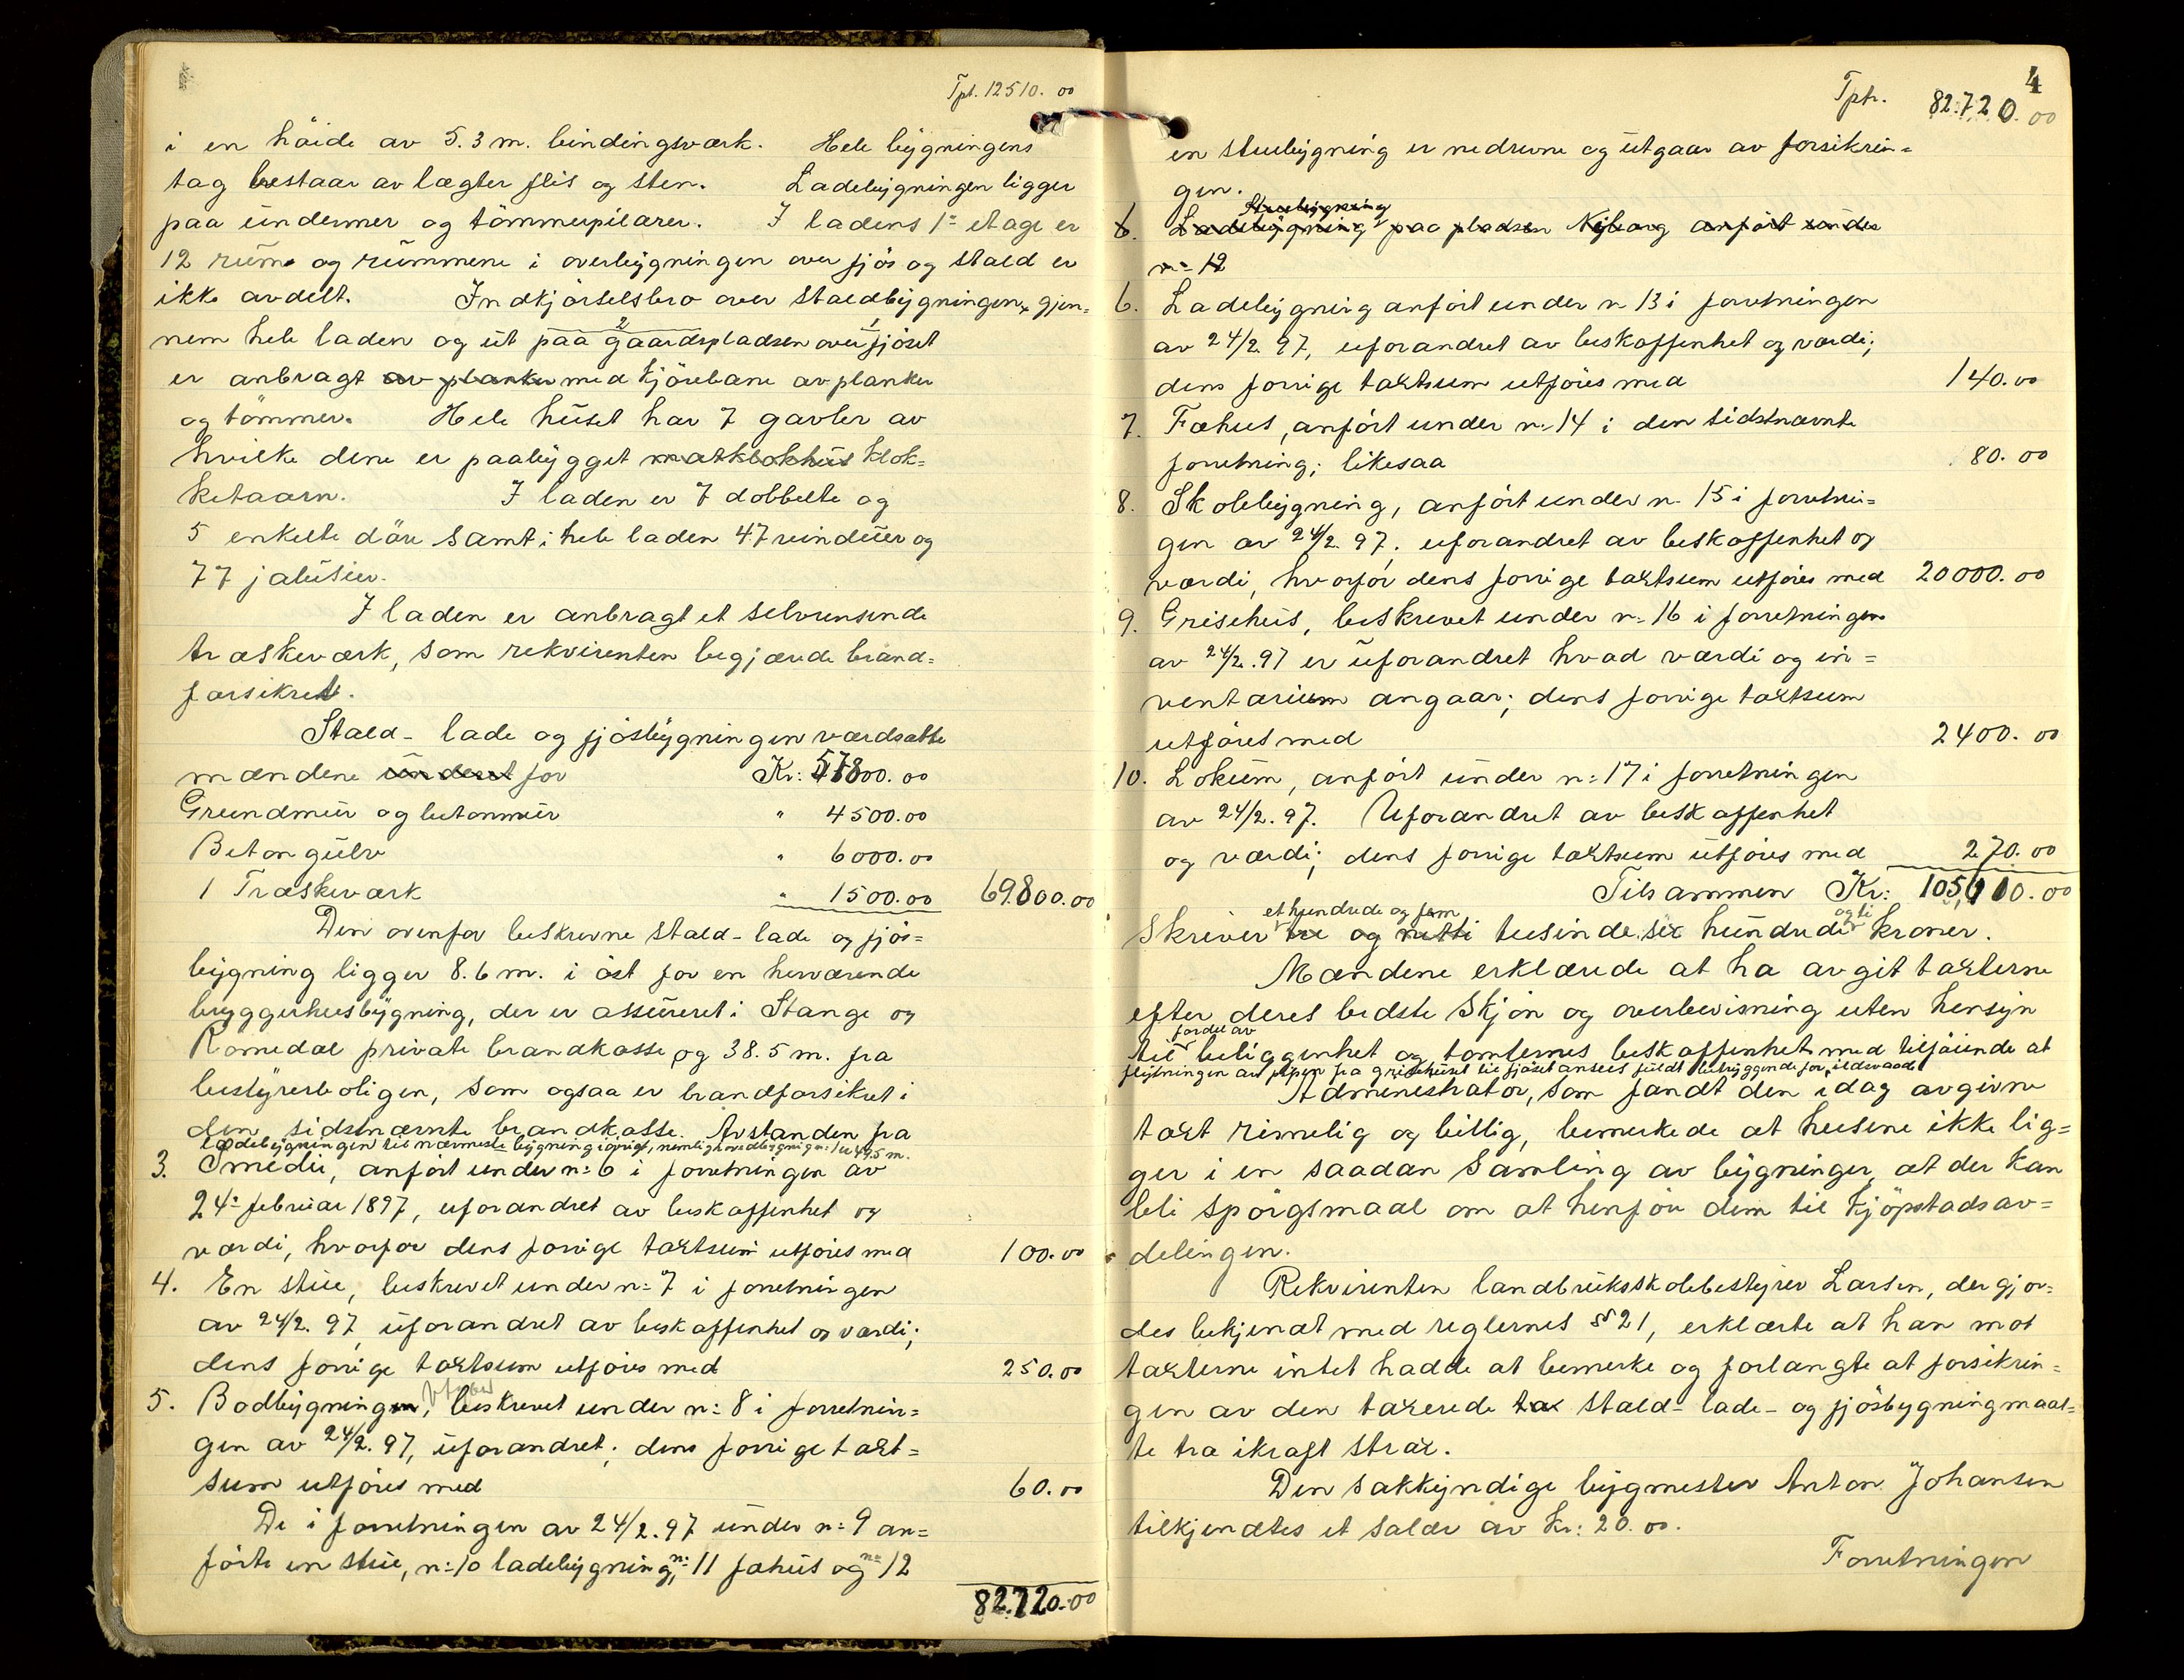 Tpt. 12510.00
i en höide av 5.3 m. bindingsværk. Hele bygningens
tag bestaar av lægter flis og sten. Ladebygningen ligger
paa undermur og tömmerpilarer. I ladens 1ˢ etage er
12 rum og rummene i overbygningen over fjös og stald er
ikke avdelt. Indkjörselsbro over staldbygningen, gjen=
nem hele laden og ut paa gaardspladsen over fjöset
er anbragt av planker med kjörebane av planker
og tömmer. Hele huset har 7 gavler av
hvilke dene er paabygget matklokhus klok=
ketaarn. I laden er 7 dobbelte og
5 enkelte döre samt i hele laden 47 vinduer og
77 jalusier.
I laden er anbragt et selvrensende
træskeværk, som rekvirenten begjærede brand=
forsikret.
Stald- lade og fjösbygningen værdsatte
mændene underet for Kr: 57800.00
Grundmur og betonmur " 4500.00
Beton gulv " 6000.00
1 Træskeværk " 1500.00 69.800.00
Den ovenfor beskrevne stald- lade og fjös=
bygning ligger 8.6 m. i öst for en herværende
bryggerhusbygning, der er assureret i Stange og
Romedal private brandkasse og 38.5 m. fra
bestyrerboligen, som ogsaa er brandforsikret i
den sidstnævnte brandkasse. Avstanden fra
ladebygningen til nærmeste bygning iövrigt, nemlig hovedbygningen: 1 er 49.5 m.
3. Smedie, anfört under n: 6 i forretningen av
24ᵈ februar 1897, uforandret av beskaffenhet og
værdi, hvorfor dens forrige taxtsum utföres med 100.00
4. En stue, beskrevet under n: 7 i forretningen
av 24/2. 97, uforandret av beskaffenhet og værdi;
dens forrige taxtsum utföres med 250.00
5. Bodbygningen, beskrevet under n: 8 i forretnin=
gen av 24/2. 97, uforandret; dens forrige taxt=
sum utföres med 60.00
De i forretningen av 24/2. 97 under n: 9 an=
förte en stue, n: 10 ladebygning, n: 11 fæhus og n: 12
82.720.00
4
Tpt. 82.720.00
en stuebygning er nedrevne og utgaar av forsikrin=
gen.
Stuebygning
6. Ladebygning paa pladsen Nyborg anfört under
n: 12
6. Ladebygning anfört under n 13 i forretningen
av 24/2. 97, uforandret av beskaffenhet og værdi;
dens forrige taxtsum utföres med 140.00
7. Fæhus, anfört under n: 14 i den sidstnævnte
forretning; likesaa 80.00
8. Skolebygning, anfört under n. 15 i forretnin=
gen av 24/2. 97; uforandret av beskaffenhet og
værdi, hvorfor dens forrige taxtsum utföres med 20000.00
9. Grisehus, beskrevet under n: 16 i forretningen
av 24/2. 97 er uforandret hvad værdi og in=
ventarium angaar; dens forrige taxtsum
utföres med 2400.00
10. Lokum, anfört under n: 17 i forretningen
av 24/2. 97. Uforandret av beskaffenhet
og værdi; dens forrige taxtsum utföres med 270.00
Tilsammen Kr: 105,610.00
et hundrede og fem og ti
Skriver tre og nitti tusinde sex hundrede kroner.
Mændene erklærede at ha avgit taxterne
efter deres bedste skjön og overbevisning uten hensyn
fordel av
til beliggenhet og tomternes beskaffenhet med tilföiende at
flytningen av pipen fra grisehuset til fjöset ansees fuldt betryggende for ildsvaade
Administrator, som fandt den idag avgivne
taxt rimelig og billig, bemerkede at husene ikke lig=
ger i en saadan samling av bygninger, at der kan
bli spörgsmaal om at henföre dem til kjöpstadsav=
delingen.
Rekvirenten landbruksskolebestyrer Larsen, der gjor=
des bekjendt med reglernes § 21, erklærte at han mot
taxterne intet hadde at bemerke og forlangte at forsikrin=
gen av den taxerede tax stald- lade- og fjösbygning maat=
te tra ikraft strax.
Den sakkyndige bygmester Anton Johansen
tilkjendtes et salær av kr: 20.00.
Forretningen